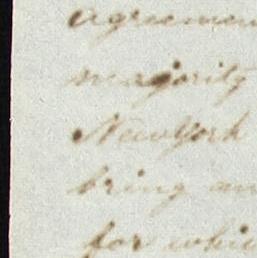 agreemen
majority
New York
bring an
for whic